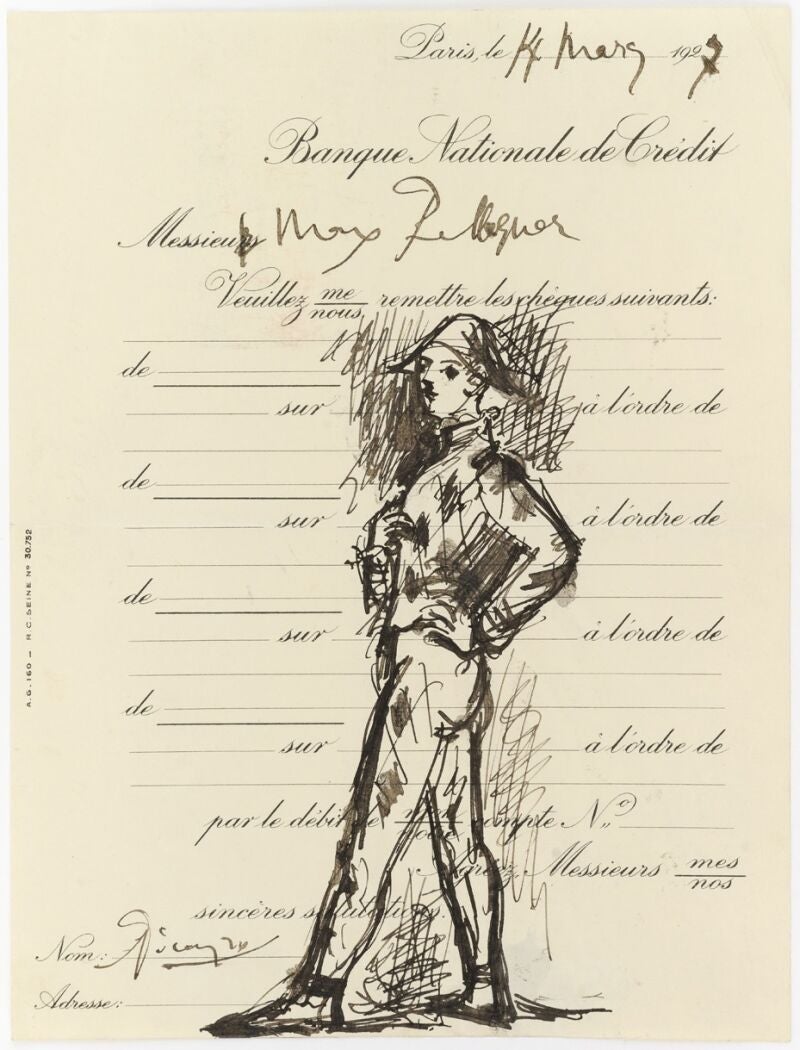 Paris, le 14 Mars 1927
Banque Nationale de Crédit
Messieurs Max Pellequer
Veuillez me remettre les chèques suivants:
nous
de
sur à l'ordre de
de
sur à l'ordre de
de
sur à l'ordre de
de
sur à l'ordre de
par le débit de compte N°
Agréez, Messieurs mes
nos
sincères salutations.
Nom: Picasso
Adresse:
A.G. 160 — R.C. SEINE N° 30.752